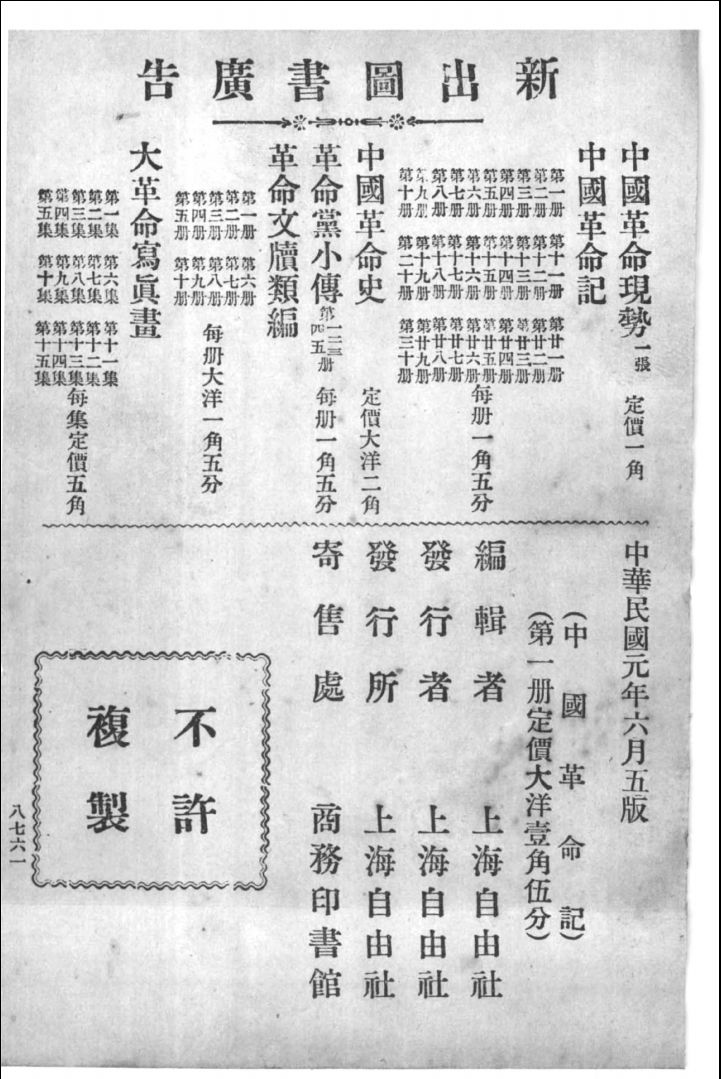 新出圖書廣告
中國革命現勢 一張 定價一角
中國革命記
第一册 第十一册 第廿一册
第二册 第十二册 第廿二册
第三册 第十三册 第廿三册
第四册 第十四册 第廿四册
第五册 第十五册 第廿五册
第六册 第十六册 第廿六册
第七册 第十七册 第廿七册
第八册 第十八册 第廿八册
第九册 第十九册 第廿九册
第十册 第二十册 第三十册
每册一角五分
中國革命史 定價大洋二角
革命黨小傳 第一二三四五册 每册一角五分
革命文牘類編
第一册 第六册
第二册 第七册
第三册 第八册
第四册 第九册
第五册 第十册
每册大洋一角五分
大革命寫眞畫
第一集 第六集 第十一集
第二集 第七集 第十二集
第三集 第八集 第十三集
第四集 第九集 第十四集
第五集 第十集 第十五集
每集定價五角
中華民國元年六月五版
(中國革命記)
(第一册定價大洋壹角伍分)
編輯者 上海自由社
發行者 上海自由社
發行所 上海自由社
寄售處 商務印書館
不許
複製
八七六一